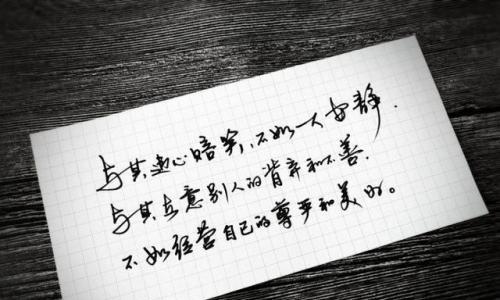 与其违心赔笑,不如一人安静.
与其在意别人的背弃和不善.
不如经营自己的尊严和美好。